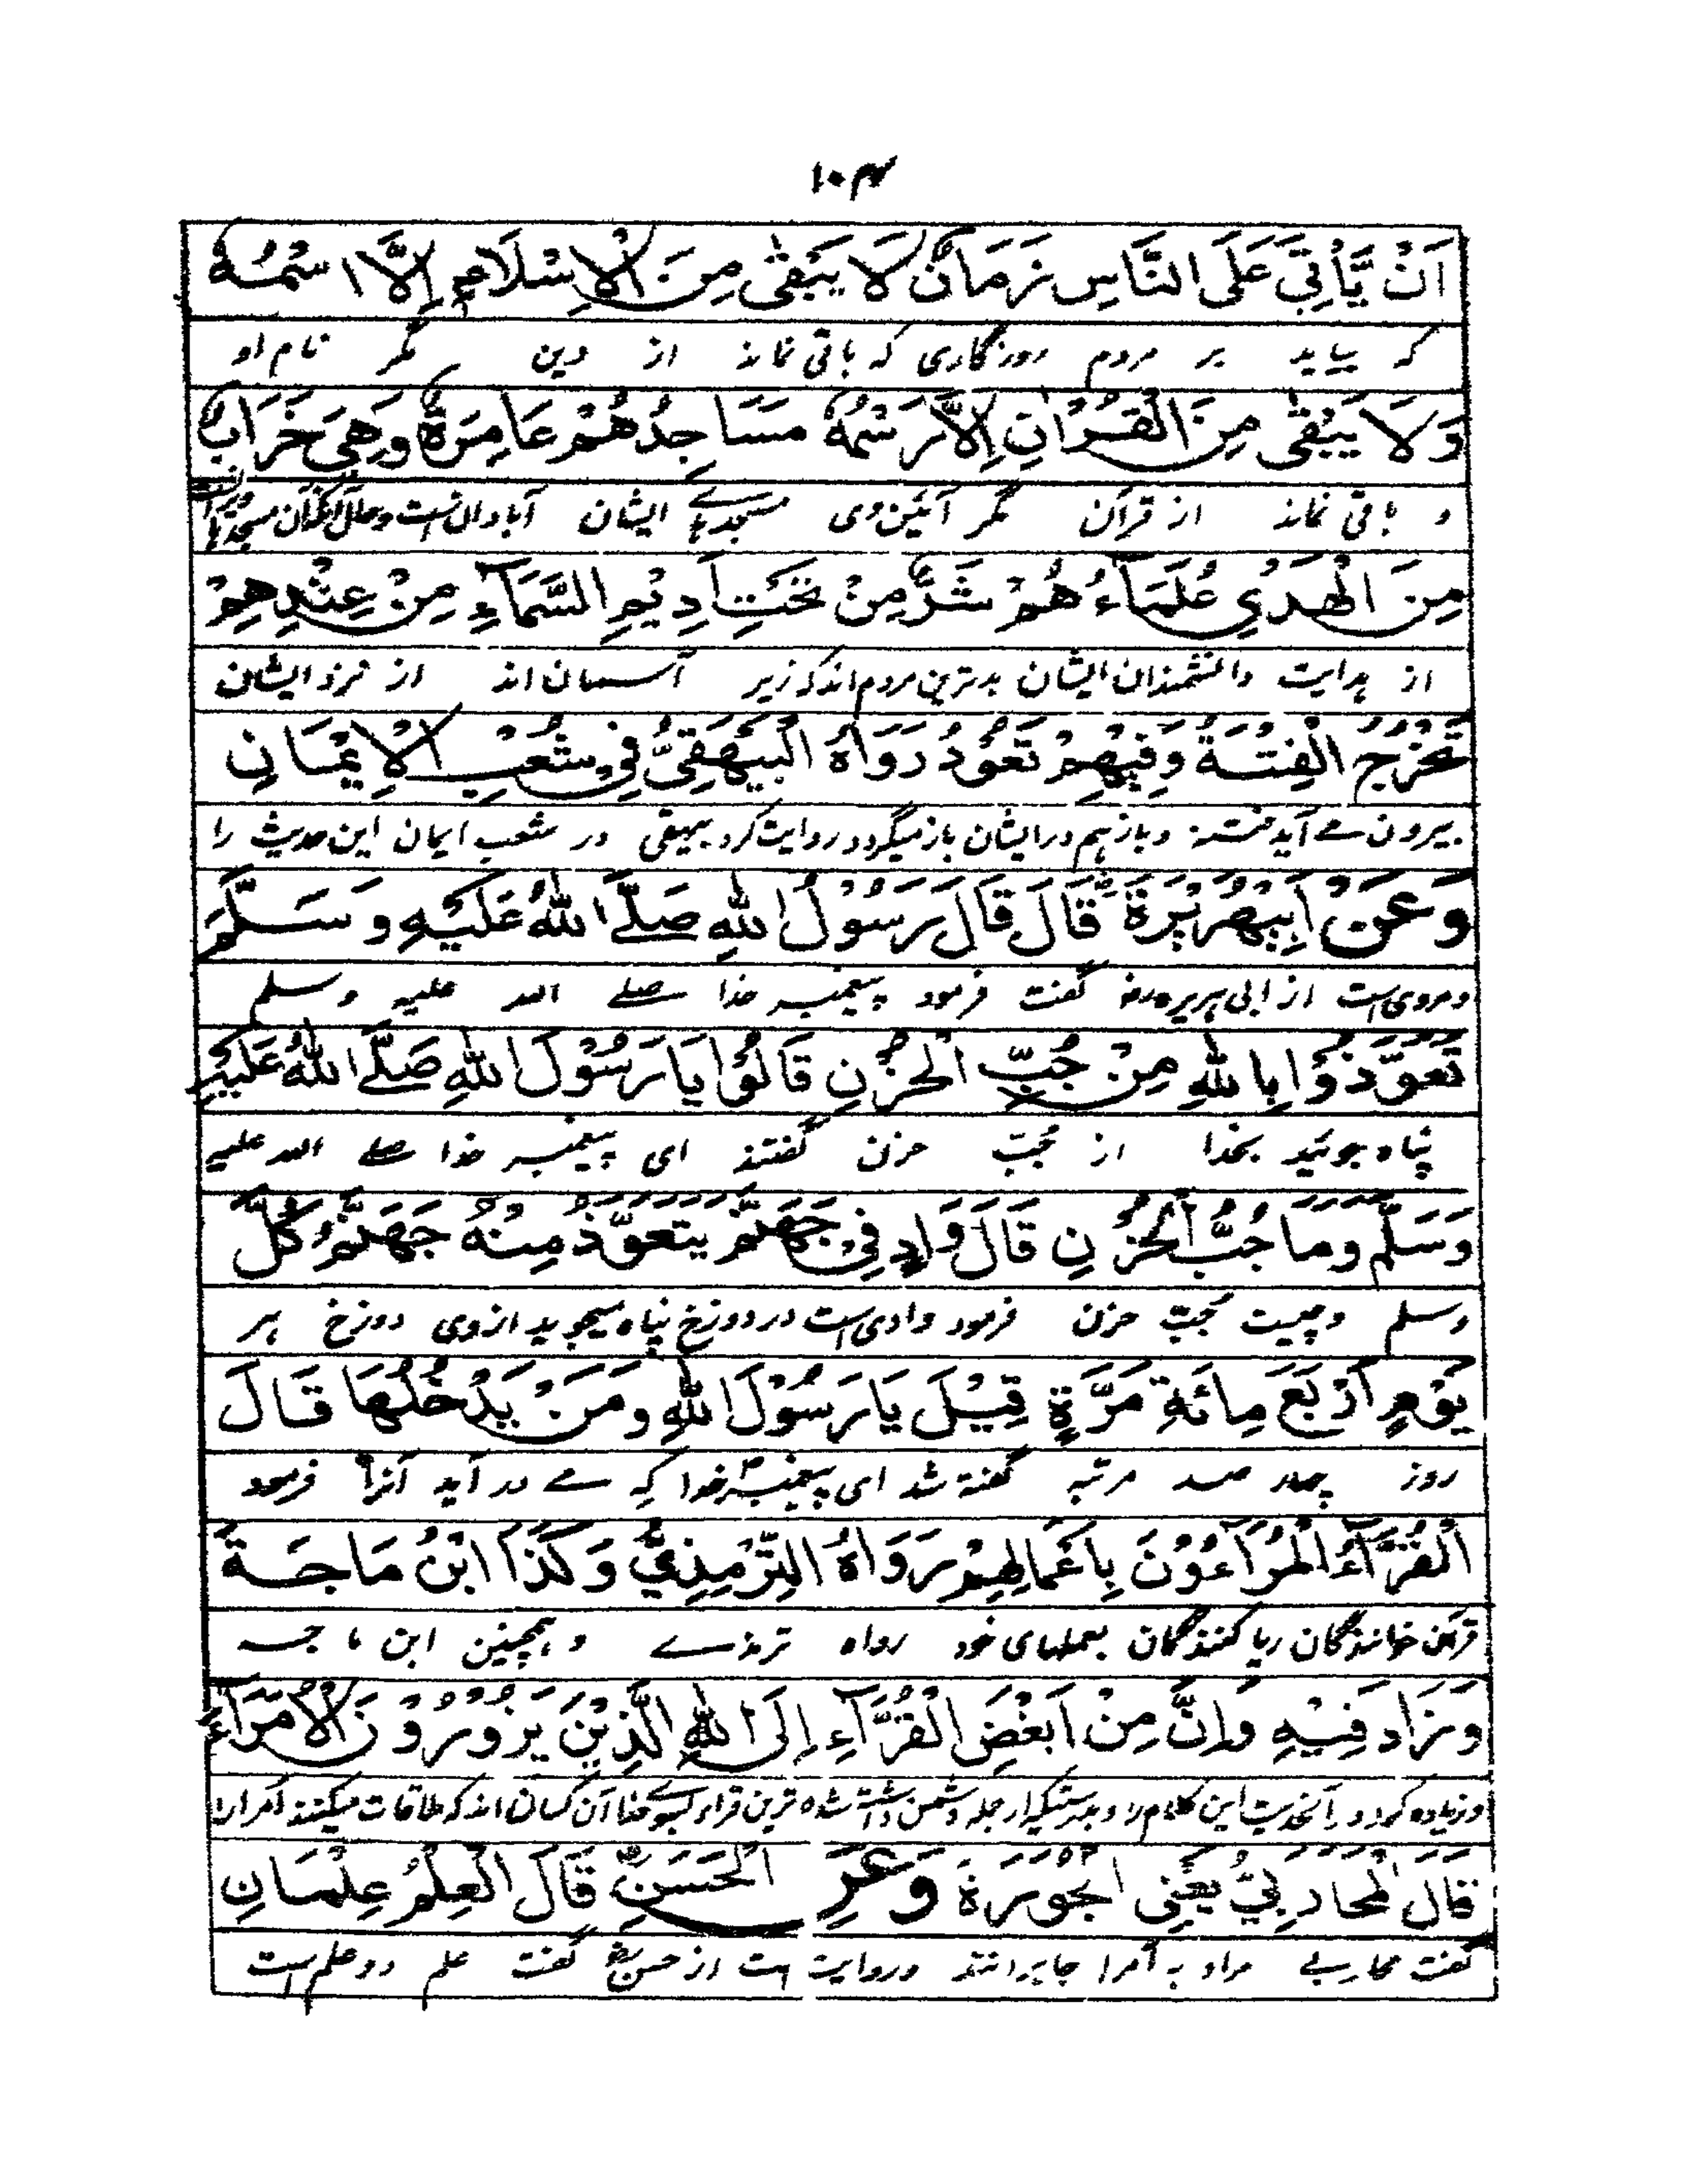 ۱۰۴
اَنْ يَّأْتِيَ عَلَى النَّاسِ زَمَانٌ لَا يَبْقٰى مِنَ الْاِسْلَامِ اِلَّا اسْمُهٗ
که بیاید بر مردم روزگاری که باقی نماند از دین مگر نام او
وَلَا يَبْقٰى مِنَ الْقُرْاٰنِ اِلَّا رَسْمُهٗ مَسَاجِدُهُمْ عَامِرَةٌ وَهِيَ خَرَابٌ
و باقی نماند از قرآن مگر آئین وی مسجدهاے ایشان آبادان است وحال آنکه آن مسجدها
مِنَ الْهُدٰى عُلَمَاءُ هُمْ شَرٌّ مِنْ تَحْتِ اَدِيْمِ السَّمَآءِ مِنْ عِنْدِهِمْ
از هدایت دانشمندان ایشان بدترین مردم اند که زیر آسمان اند از نزد ایشان
تَخْرُجُ الْفِتْنَةُ وَفِيْهِمْ تَعُوْدُ رَوَاهُ الْبَيْهَقِيُّ فِيْ شُعَبِ الْاِيْمَانِ
بیرون مے آید فتنه و باز هم در ایشان باز میگردد روایت کرد بیهقی در شعب ایمان این حدیث را
وَعَنْ اَبِيْهُرَيْرَةَ قَالَ قَالَ رَسُوْلُ اللهِ صَلَّے اللهُ عَلَيْهِ وَسَلَّمَ
ومروی است از ابی هریره رض گفت فرمود پیغمبر خدا صلے الله علیه وسلم
تَعَوَّذُوْا بِاللهِ مِنْ جُبِّ الْحُزْنِ قَالُوْا يَا رَسُوْلَ اللهِ صَلَّے اللهُ عَلَيْهِ
پناه جوئید بخدا از جُبّ حزن گفتند ای پیغمبر خدا صلے الله علیه
وَسَلَّمَ وَمَا جُبُّ الْحُزْنِ قَالَ وَادٍ فِيْ جَهَنَّمَ يَتَعَوَّذُ مِنْهُ جَهَنَّمُ كُلَّ
وسلم وچیست جُبّ حزن فرمود وادی است در دوزخ پناه میجوید از وی دوزخ هر
يَوْمٍ اَرْبَعَ مِائَةِ مَرَّةٍ قِيْلَ يَا رَسُوْلَ اللهِ وَمَنْ يَدْخُلُهَا قَالَ
روز چهار صد مرتبه گفته شد ای پیغمبر خدا که مے در آید آنرا فرمود
الْقُرَّآءُ الْمُرَآءُوْنَ بِاَعْمَالِهِمْ رَوَاهُ التِّرْمِذِيُّ وَكَذَا ابْنُ مَاجَةَ
قرآن خوانندگان ریا کنندگان بعملهای خود رواه ترمذے و همچنین ابن ماجه
وَزَادَ فِيْهِ وَاِنَّ مِنْ اَبْغَضِ الْقُرَّآءِ اِلَى اللهِ الَّذِيْنَ يَزُوْرُوْنَ الْاُمَرَآءَ
و زیاده کرد در آنحدیث این کلام را و بدرستیکه از جمله دشمن داشته شده ترین قراء بسوے خدا آن کسان اند که ملاقات میکنند اُمرا را
قَالَ الْمُحَارِبِيُّ يَعْنِى الْجَوَرَةَ وَعَنِ الْحَسَنِ قَالَ الْعِلْمُ عِلْمَانِ
گفت محاربے مراد به اُمرا جابرانند وروایت است از حسن رض گفت علم دو علم است